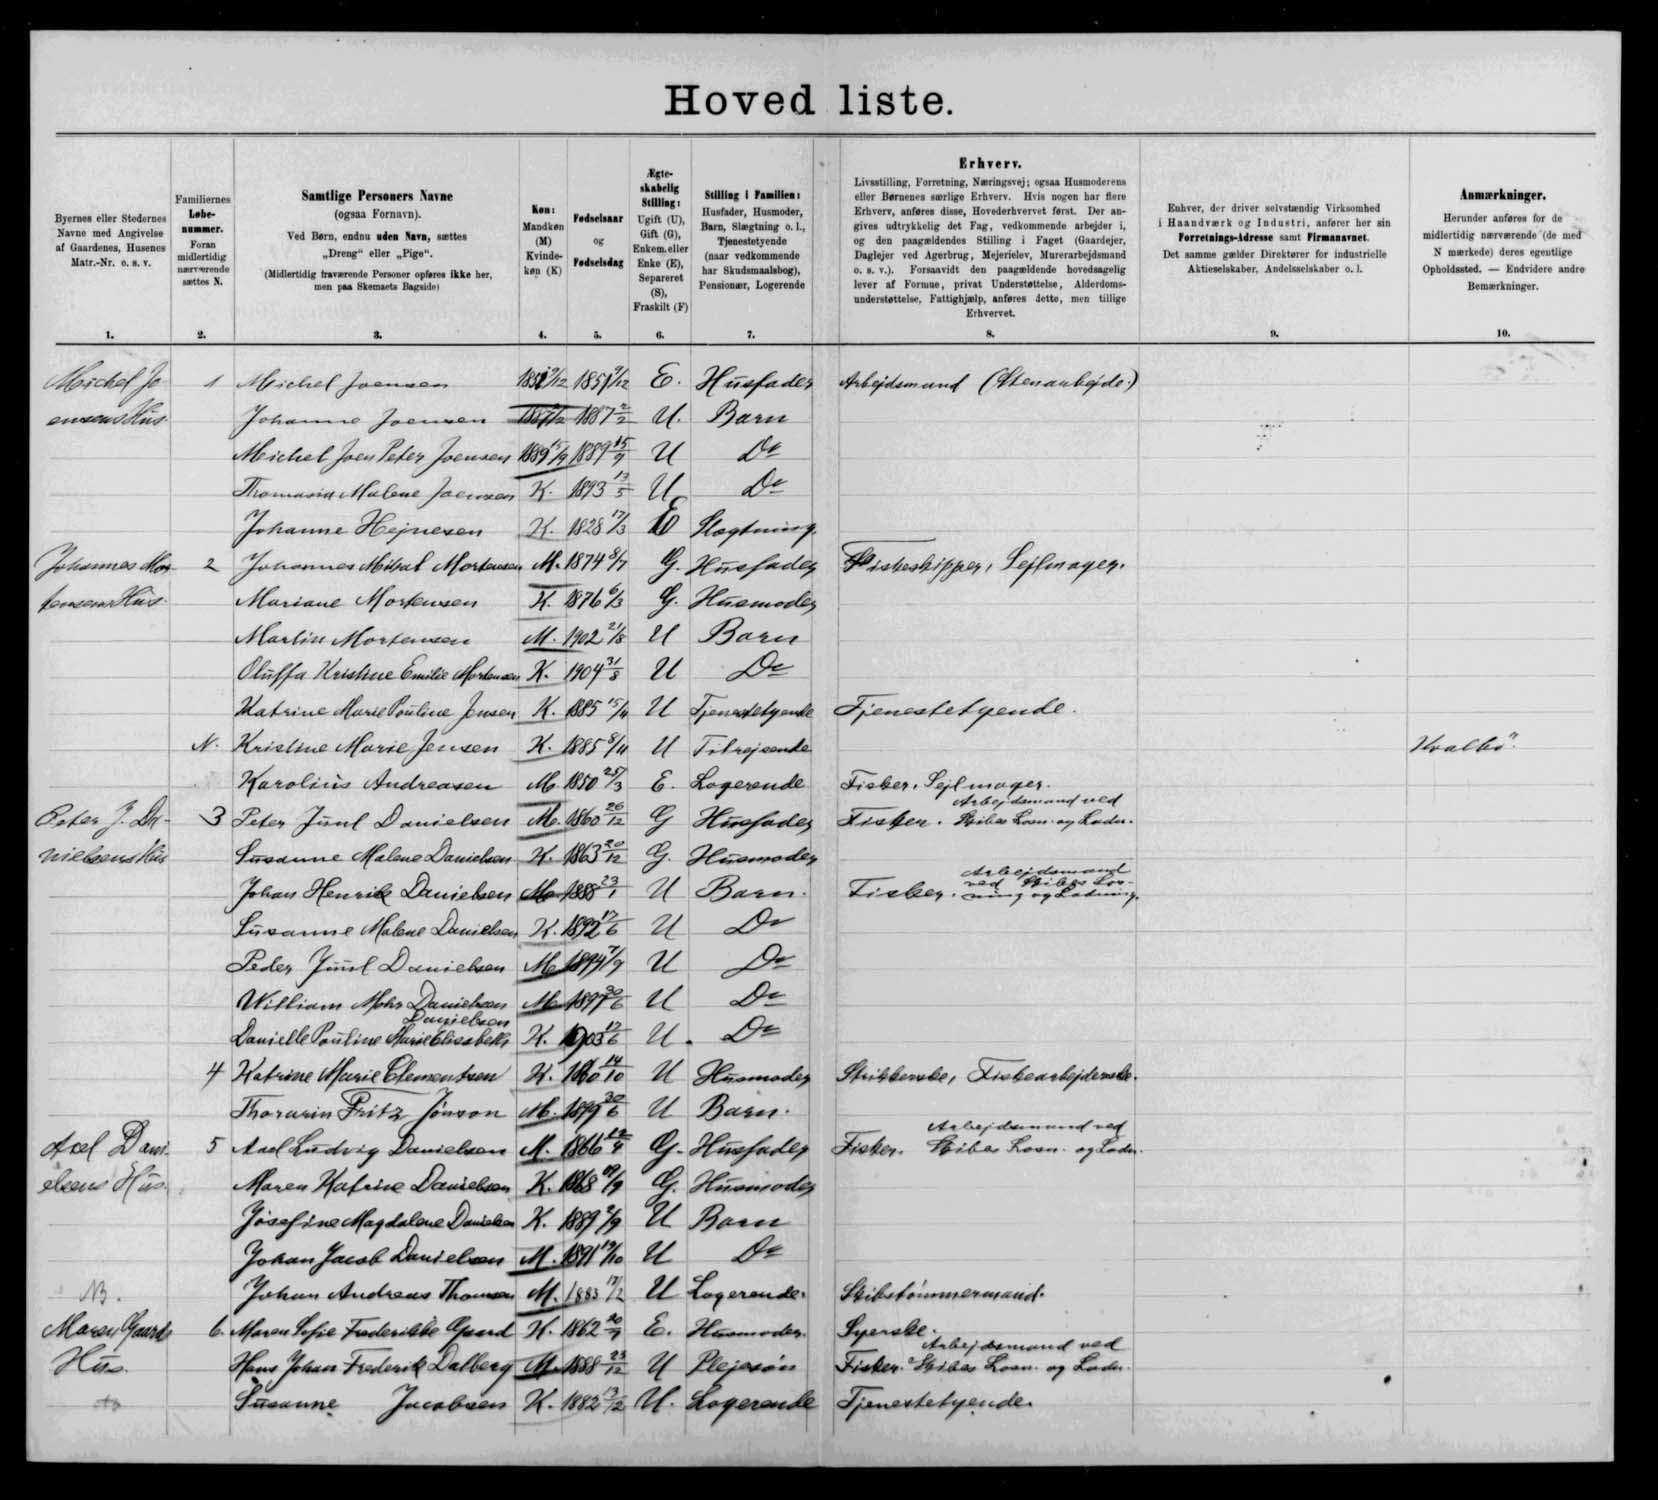 Hoved liste.
Byernes eller Stedernes Navne med Angivelse af Gaardenes, Husenes Matr.-Nr. o. s. v.
Familiernes Løbe-nummer. Foran midlertidig nærværende sættes N.
Samtlige Personers Navne (ogsaa Fornavn). Ved Børn, endnu uden Navn, sættes „Dreng“ eller „Pige“. (Midlertidig fraværende Personer opføres ikke her, men paa Skemaets Bagside)
Køn: Mandkøn (M) Kvinde-køn (K)
Fødselsaar og Fødselsdag
Ægte-skabelig Stilling: Ugift (U), Gift (G), Enkem. eller Enke (E), Separeret (S), Fraskilt (F)
Stilling i Familien: Husfader, Husmoder, Barn, Slægtning o. l., Tjenestetyende (naar vedkommende har Skudsmaalsbog), Pensionær, Logerende
Erhverv. Livsstilling, Forretning, Næringsvej; ogsaa Husmoderens eller Børnenes særlige Erhverv. Hvis nogen har flere Erhverv, anføres disse, Hovederhvervet først. Der an-gives udtrykkelig det Fag, vedkommende arbejder i, og den paagældendes Stilling i Faget (Gaardejer, Daglejer ved Agerbrug, Mejerielev, Murerarbejdsmand o. s. v.). Forsaavidt den paagældende hovedsagelig lever af Formue, privat Understøttelse, Alderdoms-understøttelse, Fattighjælp, anføres dette, men tillige Erhvervet.
Enhver, der driver selvstændig Virksomhed i Haandværk og Industri, anfører her sin Forretnings-Adresse samt Firmanavnet. Det samme gælder Direktører for industrielle Aktieselskaber, Andelsselskaber o. l.
Anmærkninger. Herunder anføres for de midlertidig nærværende (de med N mærkede) deres egentlige Opholdssted. — Endvidere andre Bemærkninger.
1. 2. 3. 4. 5. 6. 7. 8. 9. 10.
Michel Jo- 1 Michel Joensen 1851 9/12 E. Husfader Arbejdsmand (Stenarbejde.)
ensens Hus. Johanne Joensen 1887 2/2 U. Barn
Michel Joen Peter Joensen 1889 15/9 1889 15/9 U Do
Thomasia Malene Joensen K. 1893 13/5 U Do
Johanne Hejnesen K. 1828 17/3 E Slægtning.
Johannes Mor- 2 Johannes Mikal Mortensen M. 1874 8/7 G. Husfader Fiskeskipper, Sejlmager.
tensens Hus. Mariane Mortensen K. 1876 6/3 G. Husmoder
Martin Mortensen M. 1902 21/8 U Barn
Oluffa Kristine Emilie Mortensen K. 1904 31/8 U Do
Katrine Marie Pouline Jensen K. 1885 15/11 U Tjenestetyende Tjenestetyende.
N. Kristine Marie Jensen K. 1885 8/11 U Tilrejsende Kvalbö.
Karolius Andreasen M. 1850 25/3 E. Logerende Fisker, Sejlmager.
Peter J. Da- 3 Peter Juul Danielsen M. 1860 26/12 G Husfader Fisker. Arbejdsmand ved Skibes Losn. og Ladn.
nielsens Hus Susanne Malene Danielsen K. 1863 20/12 G. Husmoder
Johan Henrik Danielsen M. 1888 23/1 U Barn. Fisker. Arbejdsmand ved Skibes Los-ning og Ladning.
Susanne Malene Danielsen K. 1892 17/6 U Do
Peder Juul Danielsen M. 1894 7/9 U Do
William Mohr Danielsen M. 1897 30/6 U Do
Danielle Pouline Marie Elisabeth Danielsen K. 1903 17/6 U. Do
4 Katrine Marie Clementsen K. 1860 14/10 U Husmoder Strikkerske, Fiskearbejderske.
Thorarin Fritz Jönson M. 1899 30/6 U Barn.
Axel Dani- 5 Axel Ludvig Danielsen M. 1866 12/4 G. Husfader Fisker. Arbejdsmand ved Skibes Losn. og Ladn.
elsens Hus. Maren Katrine Danielsen K. 1868 /9 G. Husmoder
Josefine Magdalene Danielsen K. 1889 2/9 U Barn
Johan Jacob Danielsen M. 1891 19/10 U Do
NB. Johan Andreas Thomsen M. 1883 17/2 U Logerende. Skibstömmermand.
Maren Gaards 6. Maren Sofie Frederikke Gaard K. 1862 20/9 E. Husmoder. Syerske.
Hus. Hans Johan Frederik Dalberg M. 1888 23/12 U Plejesön Fisker. Arbejdsmand ved Skibes Losn. og Ladn.
do Susanne Jacobsen K. 1882 13/2 U. Logerende Tjenestetyende.